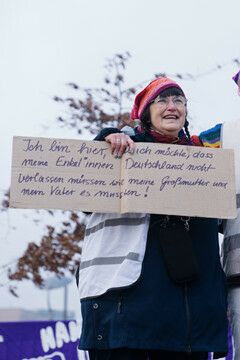 Ich bin hier, weil ich möchte, dass
meine Enkel*innen Deutschland nicht
verlassen müssen wie meine Großmutter und
mein Vater es mussten!